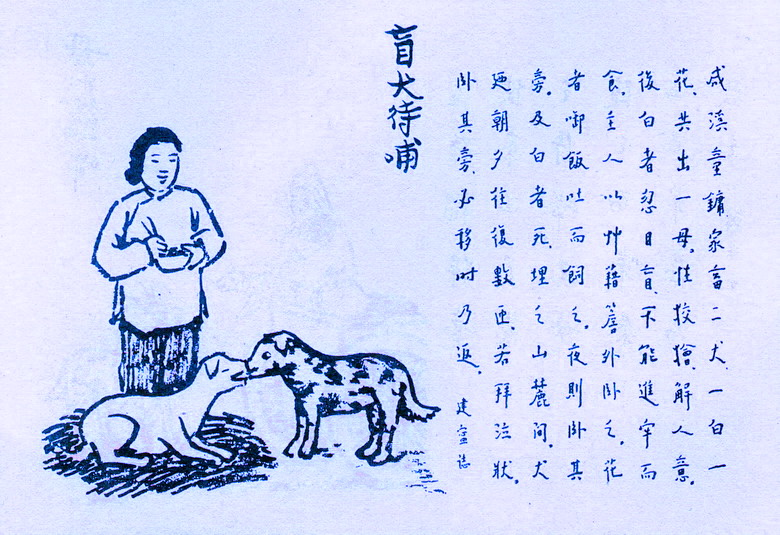 盲犬待哺
咸溪童鏞家畜二犬、一白一
花、共出一母。性狡獪、解人意。
後白者忽目盲、不能進牢而
食。主人以艸藉簷外卧之。花
者啣飯吐而飼之。夜則卧其
旁。及白者死、埋之山麓间。犬
廼朝夕往復數匝、若拜泣狀。
卧其旁、必移时乃返。
建寧誌